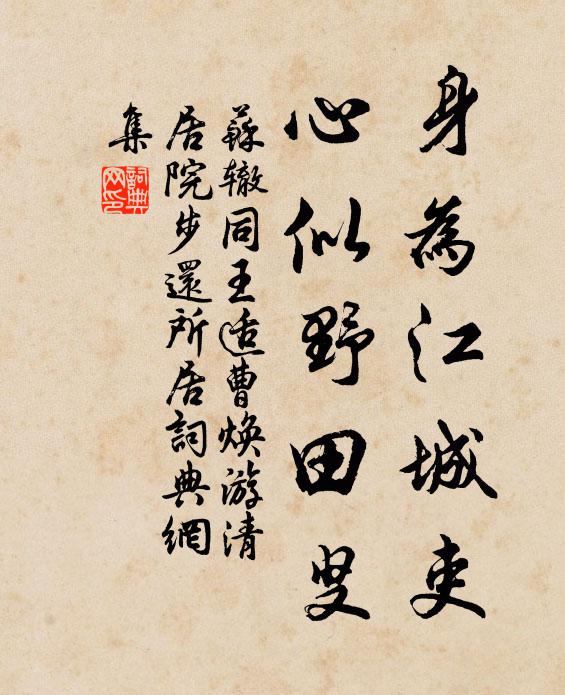 身為江城吏
心似野田叟
蘇辙同王适曹焕游清
居院步還所居詞典網
集
詞典
网印